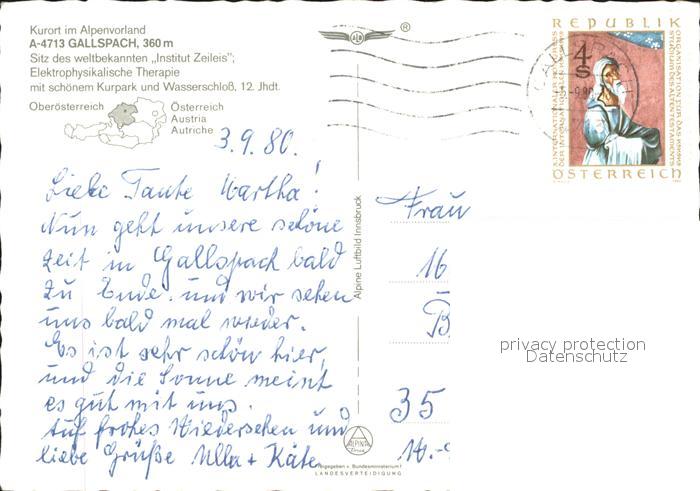 Kurort im Alpenvorland
A-4713 GALLSPACH, 360 m
Sitz des weltbekannten „Institut Zeileis";
Elektrophysikalische Therapie
mit schönem Kurpark und Wasserschloß, 12. Jhdt.
Oberösterreich
Österreich
Austria
Autriche
3.9.80.
Liebe Tante Martha!
Nun geht unsere schöne
Zeit in Gallspach bald
zu Ende. und wir sehen
uns bald mal wieder.
Es ist sehr schön hier,
und die Sonne meint
es gut mit uns.
Auf frohes Wiedersehen und
liebe Grüße Ulla + Käte
Alpine Luftbild Innsbruck
ALPINE
freigegeben v. Bundesministerium f.
LANDESVERTEIDIGUNG
®
REPUBLIK
4
S
X. INTERNATIONALER KONGRESS
DER INTERNATIONALEN
ORGANISATION FÜR DAS
STUDIUM DES ALTEN TESTAMENTS
ÖSTERREICH
Frau
16
B
35
14.-
privacy protection
Datenschutz